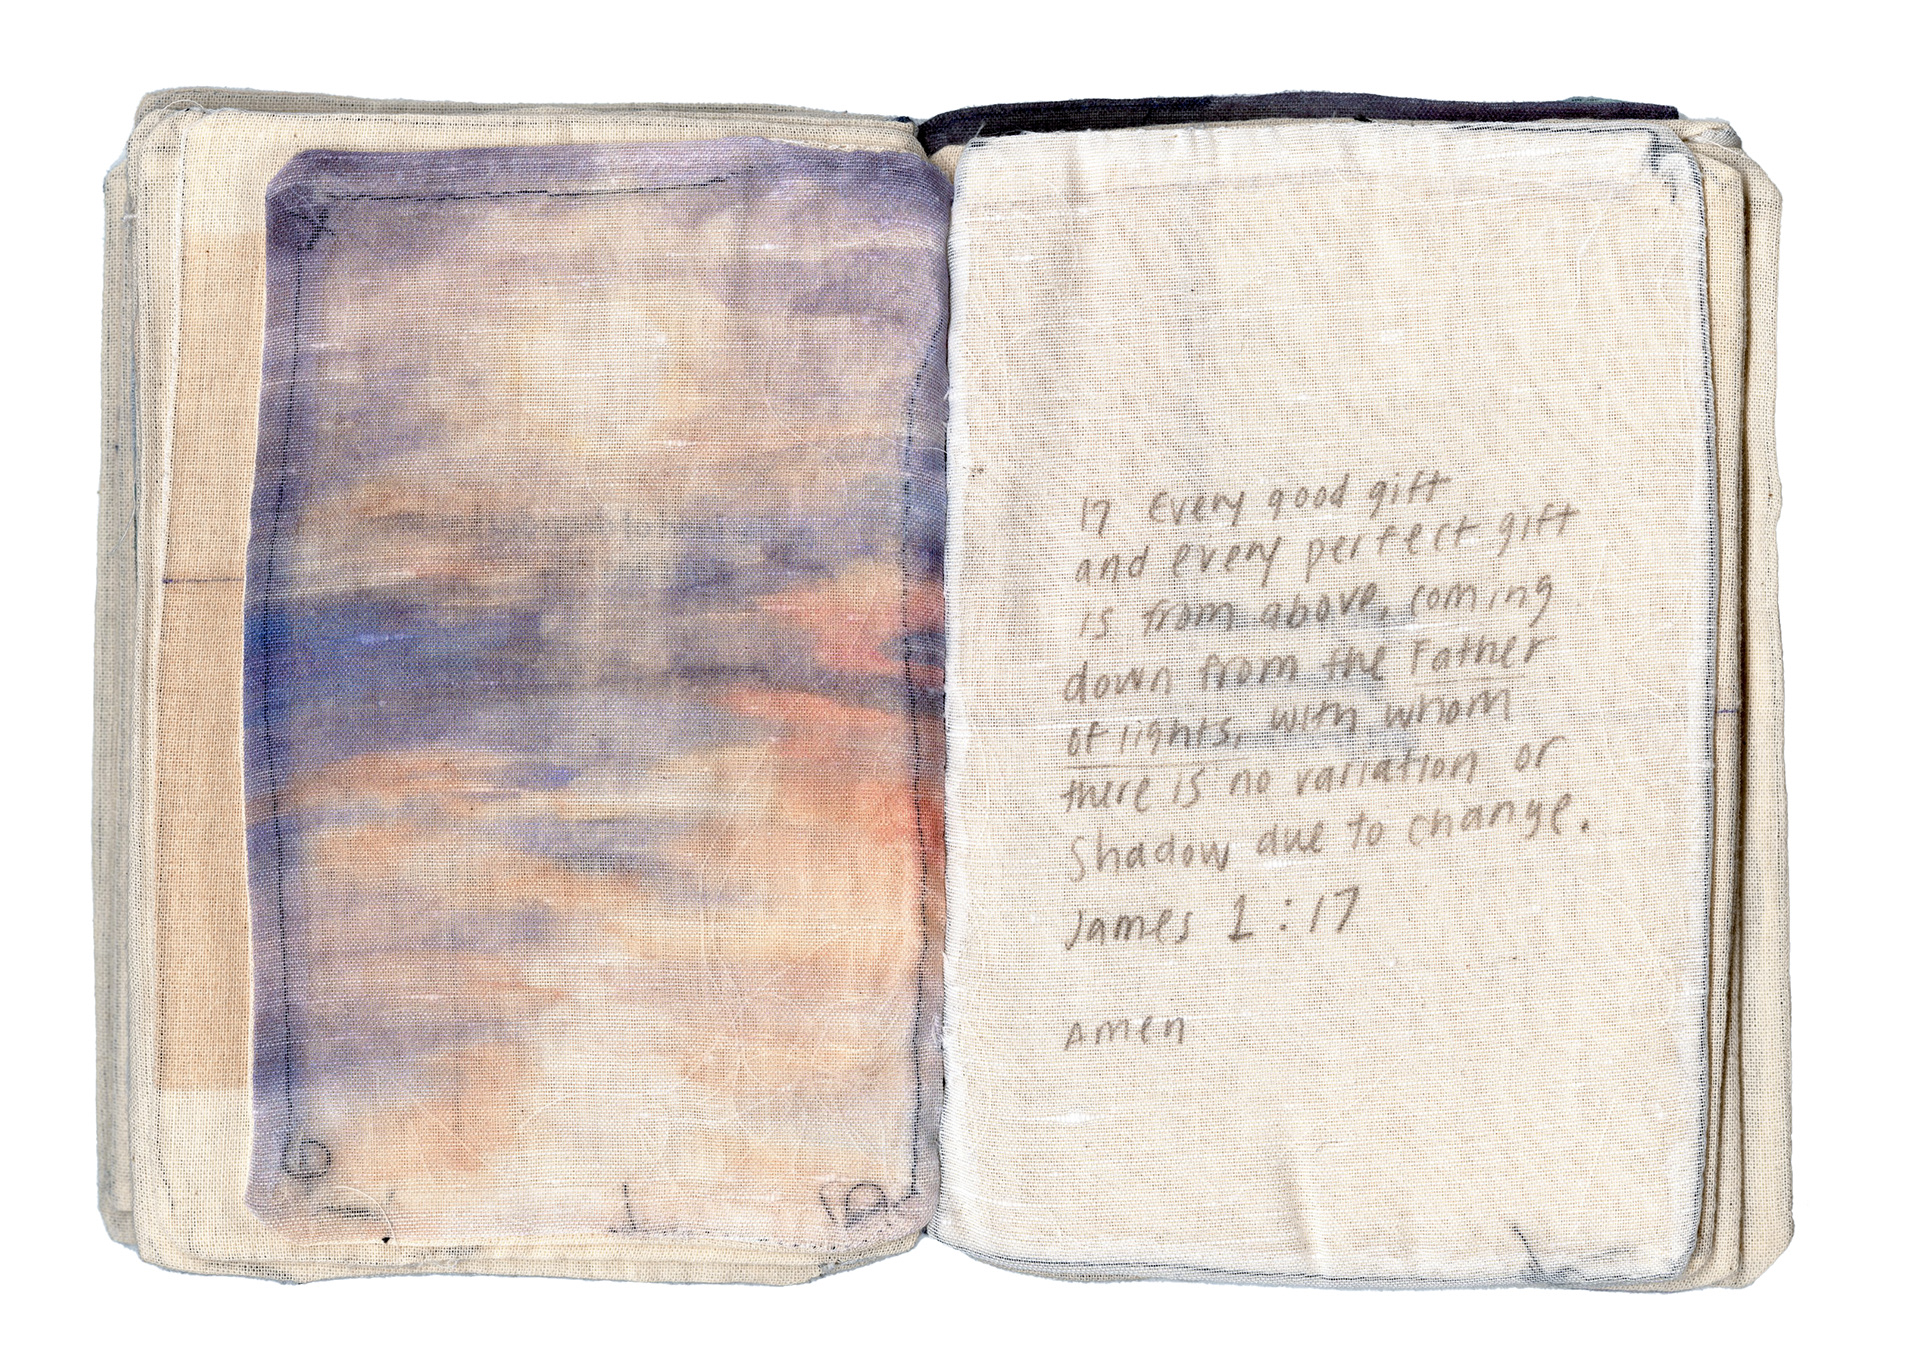 17 Every good gift
and every perfect gift
is from above, coming
down from the Father
of lights, with whom
there is no variation or
Shadow due to change.
James 1:17
Amen